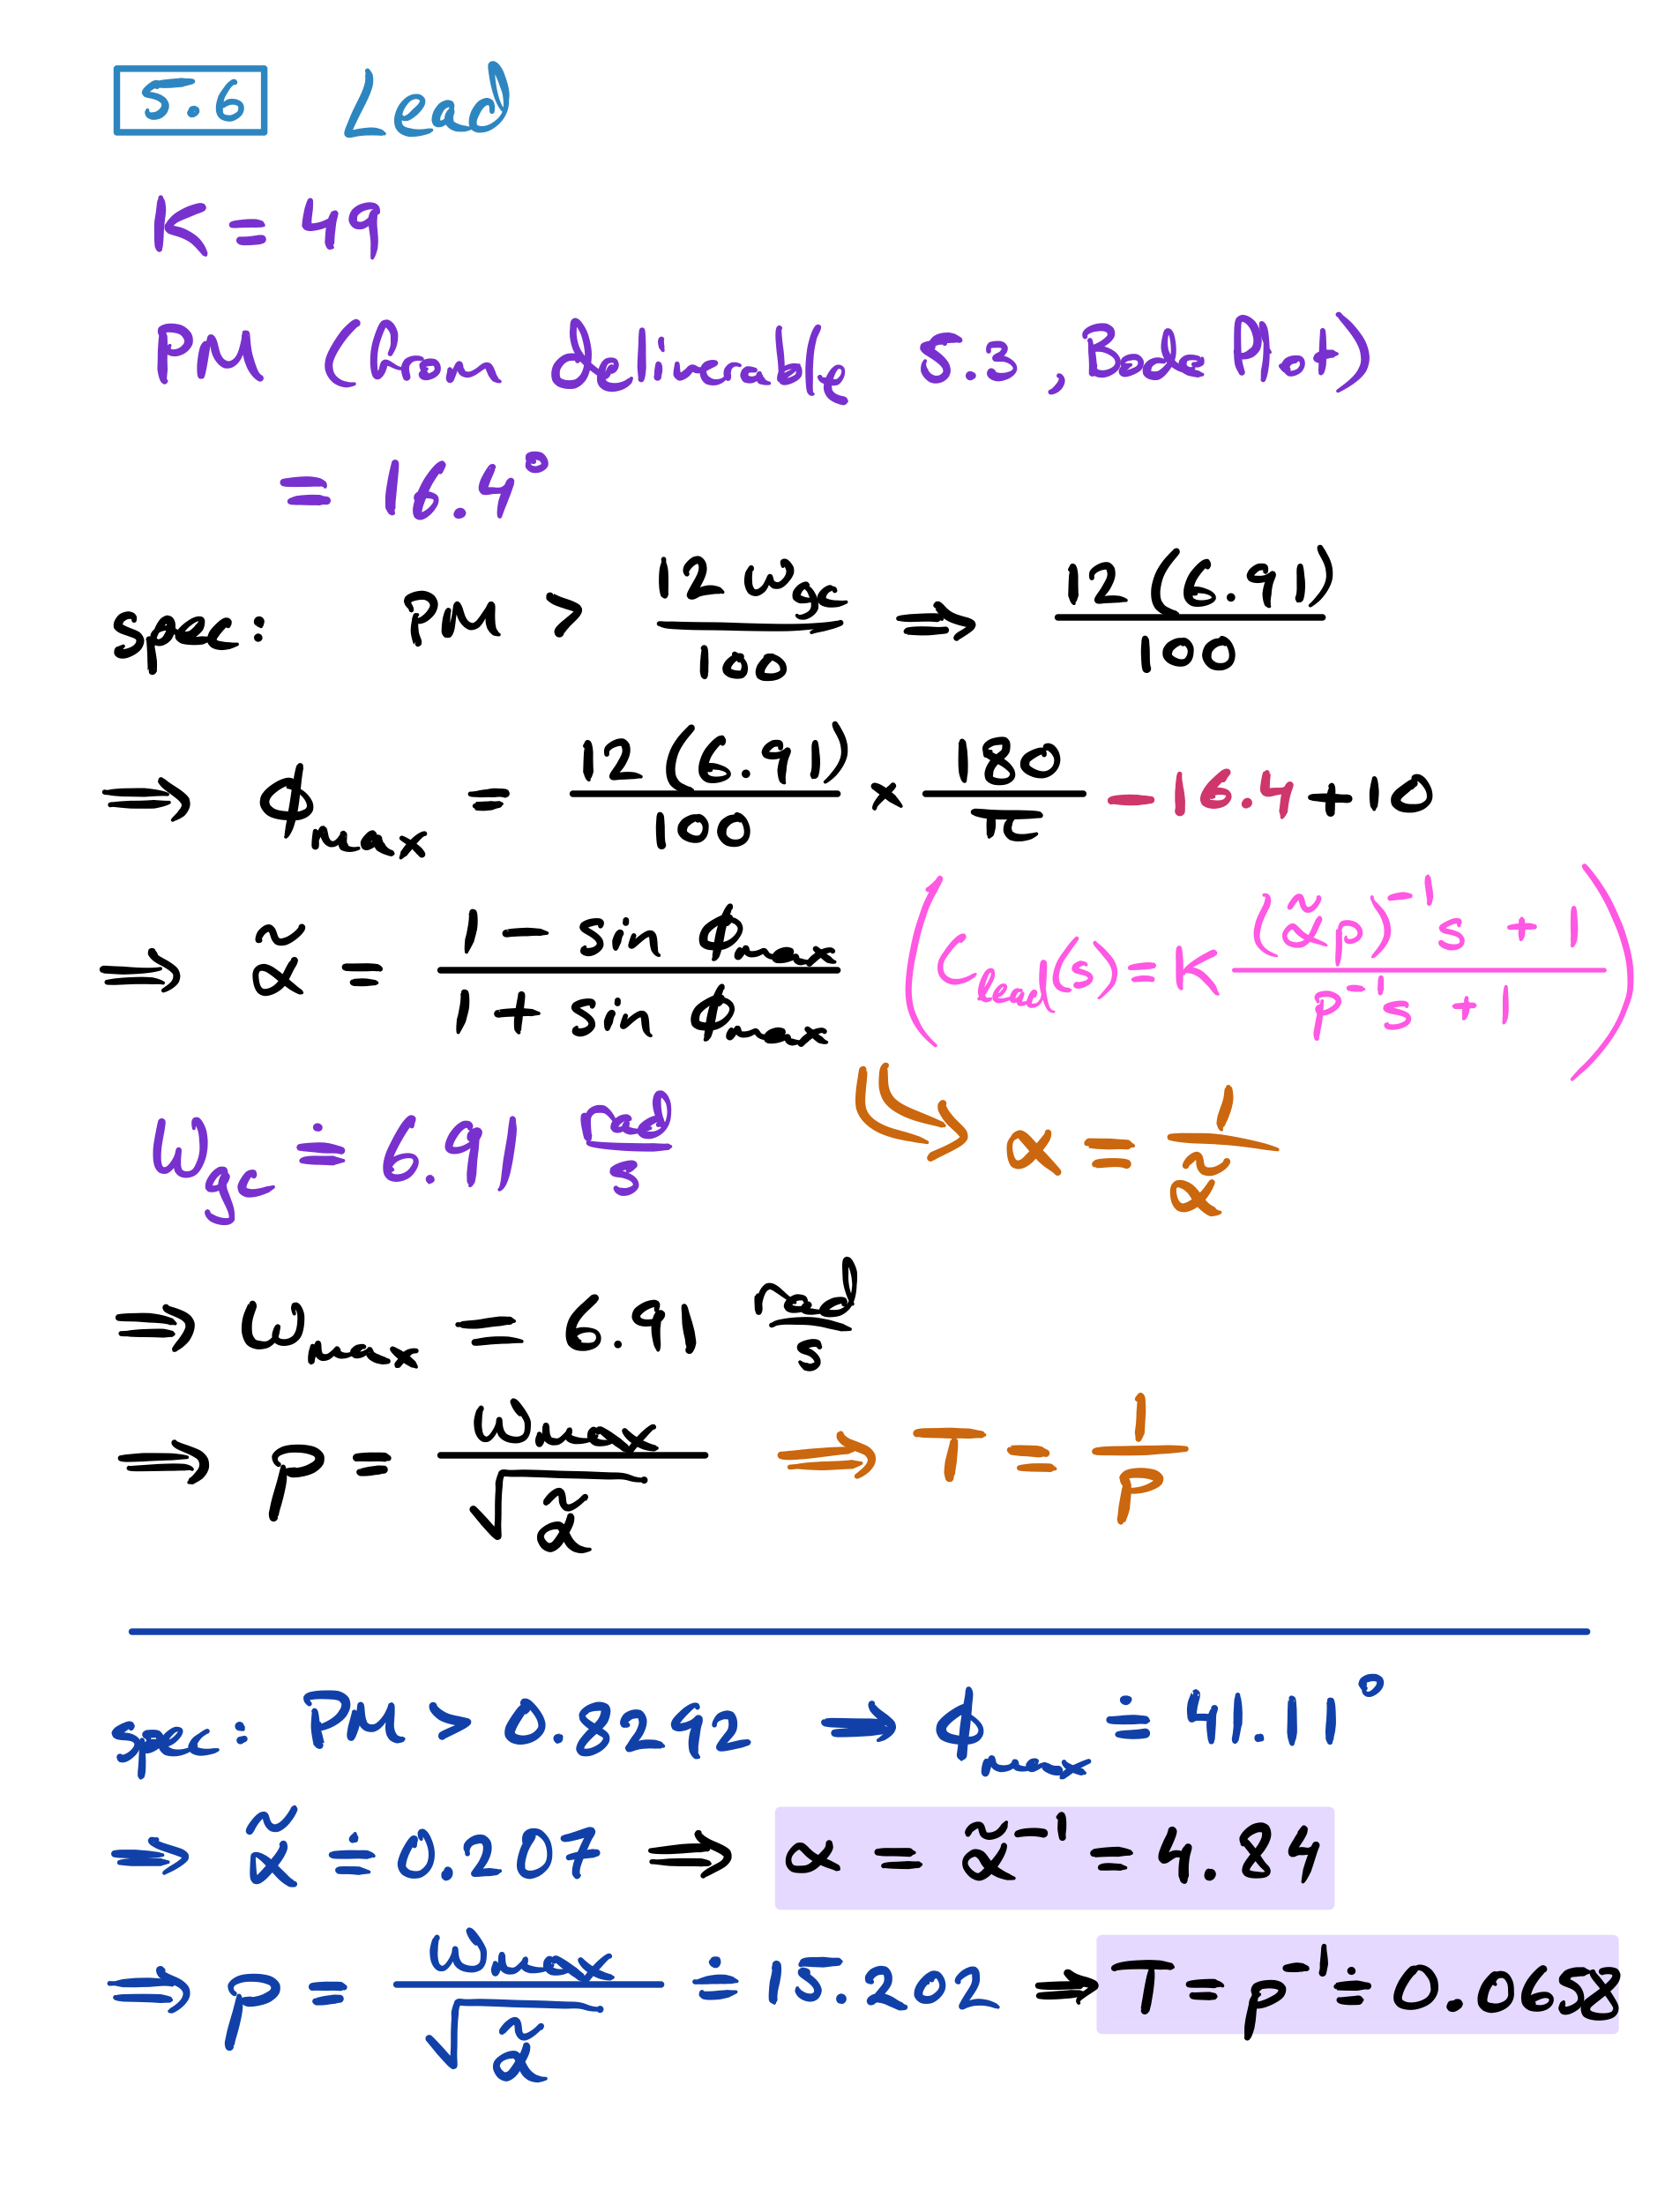 5.6 Lead
K = 49
PM (from deliverable 5.3, Bode Plot)
= 16.4°
spec: PM > 12 ω_gc / 100 ⇒ 12 (6.91) / 100
⇒ ϕ_max = 12 (6.91) / 100 × 180 / π - 16.4 + 10
⇒ α̃ = (1 - sin ϕ_max) / (1 + sin ϕ_max) (C_lead(s) = K ((α̃p)⁻¹ s + 1) / (p⁻¹s + 1))
ω_gc ≐ 6.91 rad/s ↳ α = 1 / α̃
⇒ ω_max = 6.91 rad/s
⇒ p = ω_max / √α̃ ⇒ T = 1 / p
spec: PM > 0.8292 ⇒ ϕ_max ≐ 41.11°
⇒ α̃ ≐ 0.207 ⇒ α = α̃⁻¹ = 4.84
⇒ p = ω_max / √α̃ ≐ 15.202 ⇒ T = p⁻¹ ≐ 0.0658